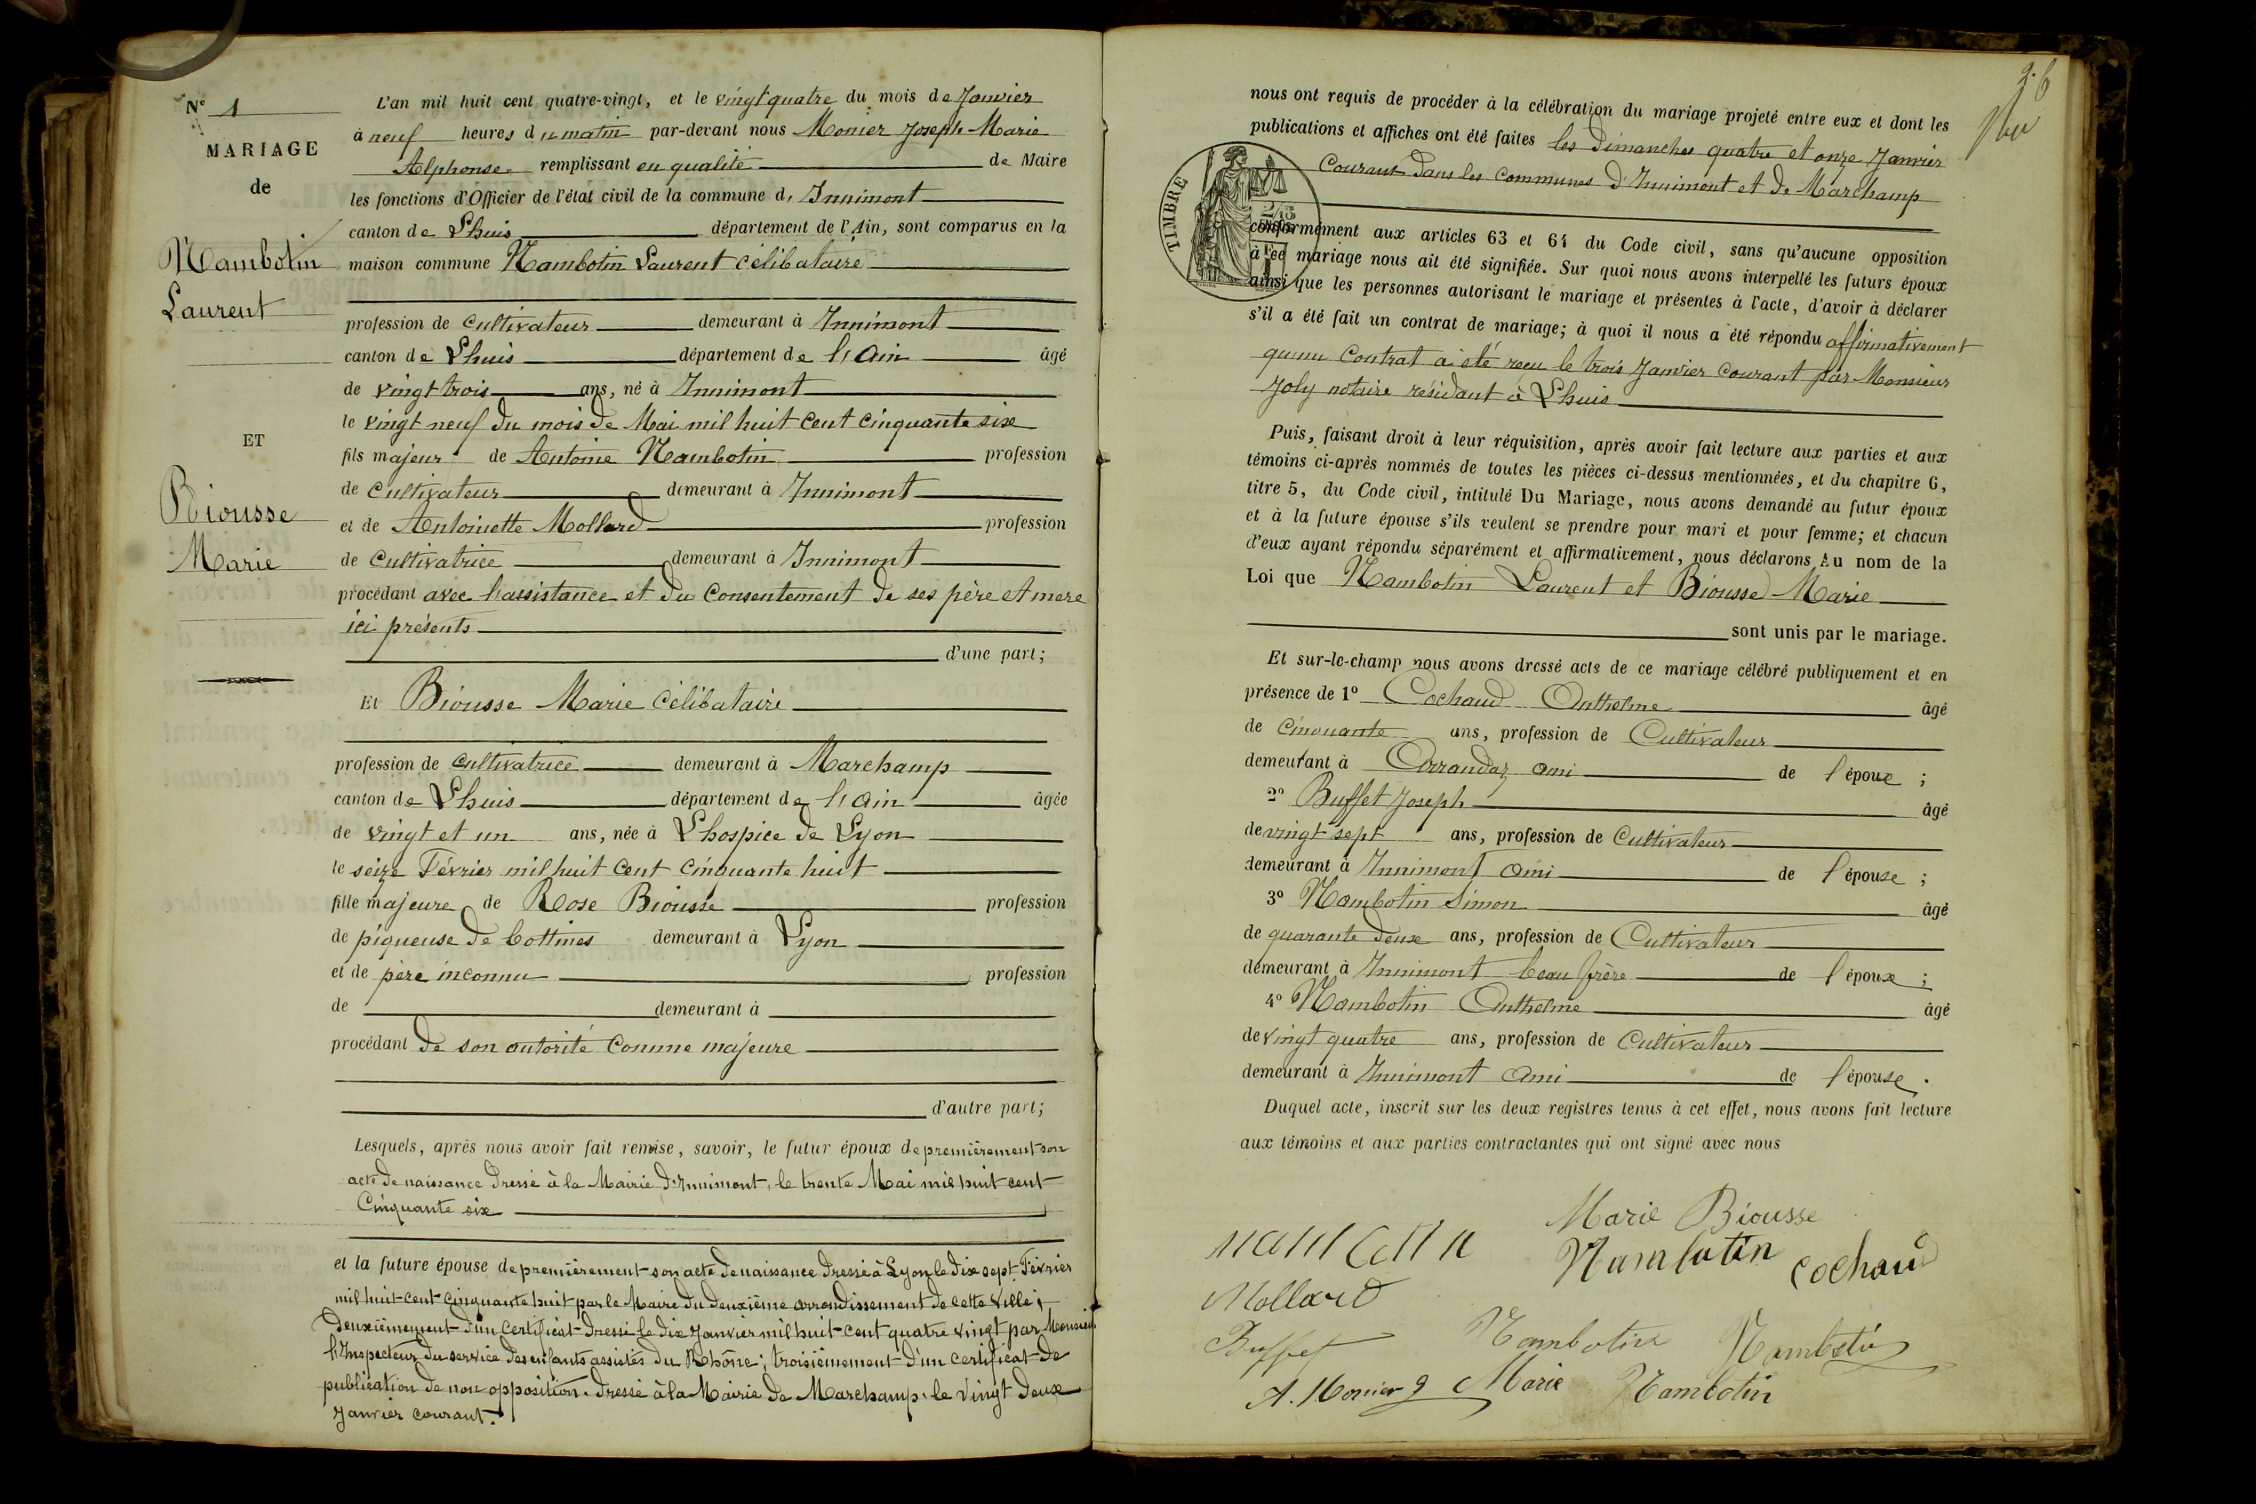 N° 1
MARIAGE
de
Nambotin
Laurent
ET
Biousse
Marie
L'an mil huit cent quatre-vingt, et le vingt quatre du mois de Janvier
à neuf heures du matin par-devant nous Monier Joseph Marie
Alphonse remplissant en qualité de Maire
les fonctions d'Officier de l'état civil de la commune d'Innimont
canton de Lhuis département de l'Ain, sont comparus en la
maison commune Nambotin Laurent célibataire
profession de cultivateur demeurant à Innimont
canton de Lhuis département de l'Ain âgé
de vingt trois ans, né à Innimont
le vingt neuf du mois de Mai mil huit cent cinquante six
fils majeur de Antoine Nambotin profession
de cultivateur demeurant à Innimont
et de Antoinette Mollard profession
de cultivatrice demeurant à Innimont
procédant avec l'assistance et du consentement de ses père et mere
ici présents
d'une part;
Et Biousse Marie célibataire
profession de cultivatrice demeurant à Marchamp
canton de Lhuis département de l'Ain âgée
de vingt et un ans, née à Lhospice de Lyon
le seize Février mil huit cent cinquante huit
fille majeure de Rose Biousse profession
de piqueuse de bottines demeurant à Lyon
et de père inconnu profession
de demeurant à
procédant de son autorité comme majeure
d'autre part;
Lesquels, après nous avoir fait remise, savoir, le futur époux de premièrement son
acte de naissance dressé à la Mairie d'Innimont, le trente Mai mil huit cent
Cinquante six
et la future épouse de premièrement son acte de naissance dressé à Lyon le dix sept Février
mil huit cent cinquante huit par le Maire du deuxième arrondissement de cette ville;
deuxièmement d'un certificat dressé le dix Janvier mil huit cent quatre vingt par Monsieur
l'Inspecteur du service des enfants assistés du Rhône; troisièmement d'un certificat de
publication de non opposition dressé à la Mairie de Marchamp le vingt deux
Janvier courant.
26
nous ont requis de procéder à la célébration du mariage projeté entre eux et dont les
publications et affiches ont été faites les dimanches quatre et onze Janvier
courant dans les communes d'Innimont et de Marchamp
TIMBRE
conformément aux articles 63 et 64 du Code civil, sans qu'aucune opposition
à ce mariage nous ait été signifiée. Sur quoi nous avons interpellé les futurs époux
ainsi que les personnes autorisant le mariage et présentes à l'acte, d'avoir à déclarer
s'il a été fait un contrat de mariage; à quoi il nous a été répondu affirmativement
qu'un contrat a été reçu le trois Janvier courant par Monsieur
Joly notaire résidant à Lhuis
Puis, faisant droit à leur réquisition, après avoir fait lecture aux parties et aux
témoins ci-après nommés de toutes les pièces ci-dessus mentionnées, et du chapitre 6,
titre 5, du Code civil, intitulé Du Mariage, nous avons demandé au futur époux
et à la future épouse s'ils veulent se prendre pour mari et pour femme; et chacun
d'eux ayant répondu séparément et affirmativement, nous déclarons Au nom de la
Loi que Nambotin Laurent et Biousse Marie
sont unis par le mariage.
Et sur-le-champ nous avons dressé acte de ce mariage célébré publiquement et en
présence de 1° Cochaud Anthelme âgé
de cinquante ans, profession de Cultivateur
demeurant à Arrandaz ami de l'époux ;
2° Buffet Joseph âgé
de vingt sept ans, profession de Cultivateur
demeurant à Innimont ami de l'épouse ;
3° Nambotin Simon âgé
de quarante deux ans, profession de Cultivateur
demeurant à Innimont beau frère de l'époux ;
4° Nambotin Anthelme âgé
de vingt quatre ans, profession de Cultivateur
demeurant à Innimont Ami de l'épouse.
Duquel acte, inscrit sur les deux registres tenus à cet effet, nous avons fait lecture
aux témoins et aux parties contractantes qui ont signé avec nous
Marie Biousse
Nambotin cochaud
Mollard
Buffet Nambotin Nambotin
A. Monier Marie Nambotin